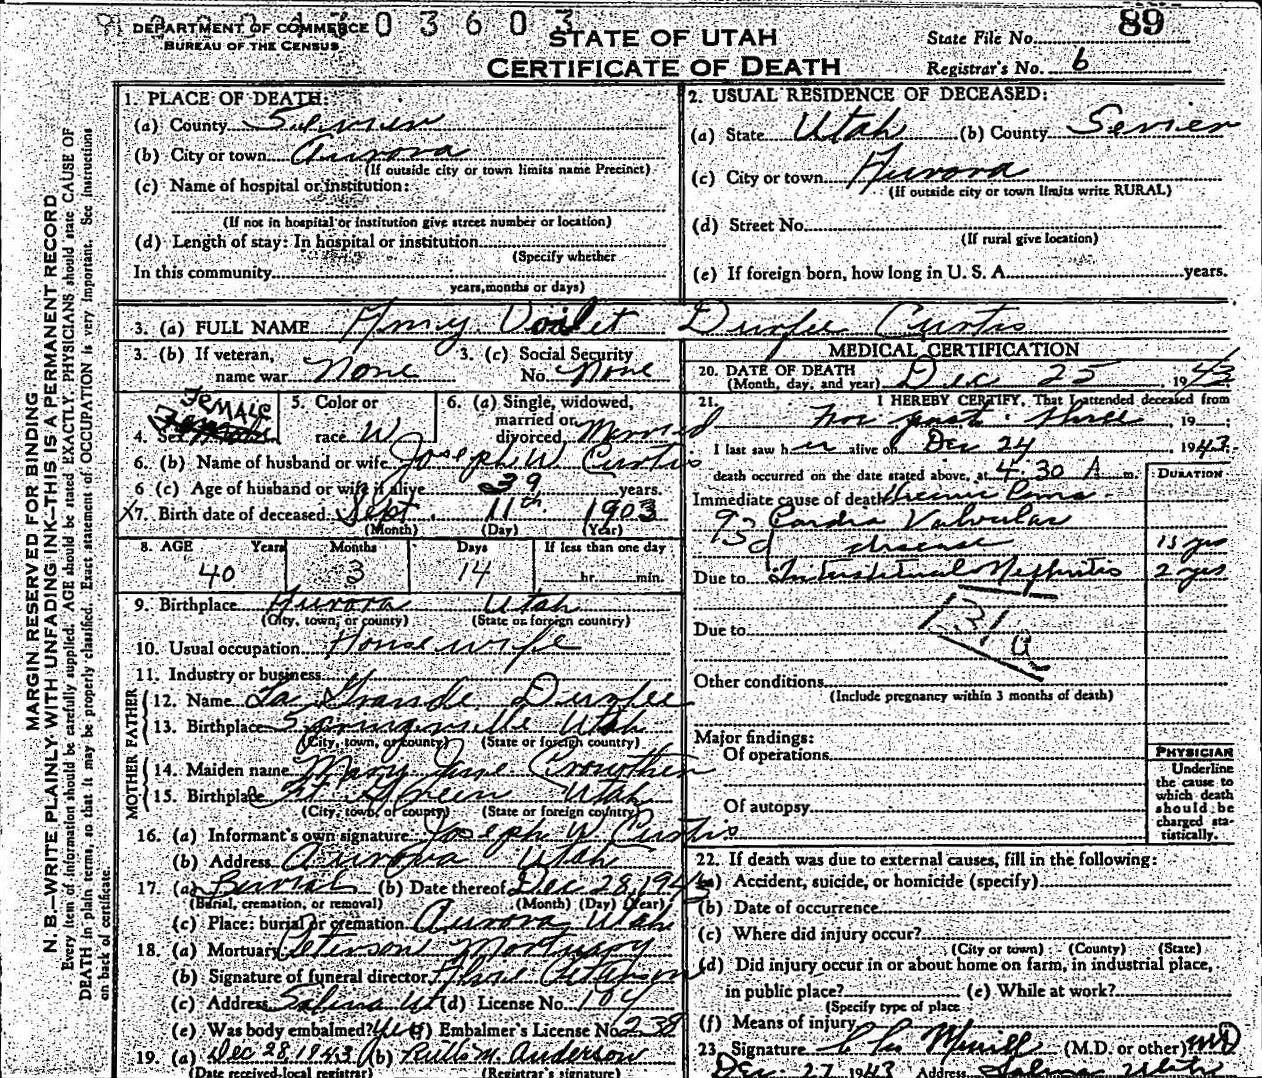 DEPARTMENT OF COMMERCE
BUREAU OF THE CENSUS
03603
STATE OF UTAH
CERTIFICATE OF DEATH
89
State File No.
Registrar's No. 6
MARGIN RESERVED FOR BINDING
N. B.—WRITE PLAINLY WITH UNFADING INK—THIS IS A PERMANENT RECORD
Every item of information should be carefully supplied. AGE should be stated EXACTLY. PHYSICIANS should state CAUSE OF
DEATH in plain terms, so that it may be properly classified. Exact statement of OCCUPATION is very important. See instructions
on back of certificate.
1. PLACE OF DEATH:
(a) County Sevier
(b) City or town Aurora
(If outside city or town limits name Precinct)
(c) Name of hospital or institution:
(If not in hospital or institution give street number or location)
(d) Length of stay: In hospital or institution
(Specify whether
In this community
years, months or days)
2. USUAL RESIDENCE OF DECEASED:
(a) State Utah (b) County Sevier
(c) City or town Aurora
(If outside city or town limits write RURAL)
(d) Street No.
(If rural give location)
(e) If foreign born, how long in U. S. A. years.
3. (a) FULL NAME Amy Voilet Durfee Curtis
3. (b) If veteran, name war None
3. (c) Social Security No. None
4. Sex FEMALE
5. Color or race W
6. (a) Single, widowed, married or divorced Married
6. (b) Name of husband or wife Joseph W Curtis
6 (c) Age of husband or wife if alive 39 years.
X7. Birth date of deceased Sept. 11th 1903
(Month) (Day) (Year)
8. AGE Years Months Days If less than one day
40 3 14 hr. min.
9. Birthplace Aurora Utah
(City, town, or county) (State or foreign country)
10. Usual occupation Housewife
11. Industry or business
FATHER
12. Name La Grande Durfee
13. Birthplace Springville Utah
(City, town, or county) (State or foreign country)
MOTHER
14. Maiden name Mary Jane Crowther
15. Birthplace Ft Green Utah
(City, town, or county) (State or foreign country)
16. (a) Informant's own signature Joseph W Curtis
(b) Address Aurora Utah
17. (a) Burial (b) Date thereof Dec 28, 194
(Burial, cremation, or removal) (Month) (Day) (Year)
(c) Place: burial or cremation Aurora Utah
18. (a) Mortuary Peterson Mortuary
(b) Signature of funeral director
(c) Address Salina Ut (d) License No. 104
(e) Was body embalmed? Yes (f) Embalmer's License No. 238
19. (a) Dec 28, 1943 (b) M. Anderson
(Date received local registrar) (Registrar's signature)
MEDICAL CERTIFICATION
20. DATE OF DEATH
(Month, day, and year) Dec 25, 1943
21. I HEREBY CERTIFY, That I attended deceased from
For past three, 19
I last saw her alive on Dec 24 1943
death occurred on the date stated above, at 4:30 A m.
DURATION
Immediate cause of death Uremic Coma
93d Cardio Valvular
disease 15 yrs
Due to Interstitial Nephritis 2 yrs
131a
Due to
Other conditions
(Include pregnancy within 3 months of death)
Major findings:
Of operations
Of autopsy
PHYSICIAN
Underline
the cause to
which death
should be
charged sta-
tistically.
22. If death was due to external causes, fill in the following:
(a) Accident, suicide, or homicide (specify)
(b) Date of occurrence
(c) Where did injury occur?
(City or town) (County) (State)
(d) Did injury occur in or about home on farm, in industrial place,
in public place? (e) While at work?
(Specify type of place
(f) Means of injury
23. Signature Merrill (M.D. or other) MD
Dec 27 1943 Address Salina Utah